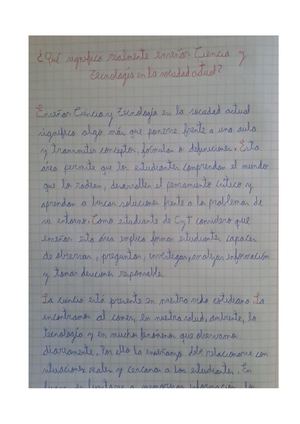 ¿Qué significa realmente enseñar Ciencia y
Tecnología en la sociedad actual?
Enseñar Ciencia y Tecnología en la sociedad actual
significa algo más que ponerse frente a una aula
y transmitir conceptos, fórmulas o definiciones. Esta
área permite que los estudiantes comprendan el mundo
que lo rodean, desarrollen el pensamiento crítico y
aprendan a buscar soluciones frente a los problemas de
su entorno. Como estudiante de CyT considero que
enseñar esta área implica formar estudiantes capaces
de observar, preguntar, investigar, analizar información
y tomar decisiones responsable.
La ciencia está presente en nuestra vida cotidiana. La
encontramos al comer, en nuestra salud, ambiente, la
tecnología y en muchos fenómenos que observamos
diariamente. Por ello la enseñanza debe relacionarse con
situaciones reales y cercanas a los estudiantes. En
lugar de limitarse a memorizar información, los